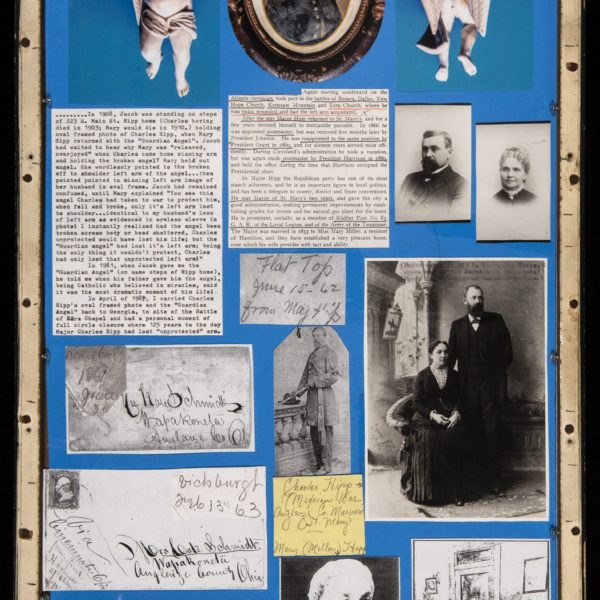 .........In 1908, Jacob was standing on steps
of 223 E. Main St. Hipp home (Charles having
died in 1903; Mary would die in 1910,) holding
oval framed photo of Charles Hipp, when Mary
Hipp returned with the "Guardian Angel". Jacob
had waited to hear why Mary was "relieved,
overjoyed" when Charles came home missing arm
and holding the broken angel? Mary held out
angel. She wordlessly pointed to the broken
off to shoulder left arm of the angel...then
pointed pointed to missing left arm image of
her husband in oval frame. Jacob had remained
confused, until Mary explained "You see this
angel Charles had taken to war to protect him,
when fell and broke, only it's left arm lost
to shoulder...identical to my husband's loss
of left arm as evidenced in armless sleeve in
photo! I instantly realized had the angel been
broken across body or head shattered, Charles
unprotected would have lost his life; but the
"Guardian angel" had lost it's left arm; being
the only thing it couldn't protect, Charles
had only lost that unprotected left arm!"
In 1981, when Jacob gave me the
"Guardian Angel" (on same steps of Hipp home),
he told me when his father gave him the angel,
being Catholic who believed in miracles, said
it was the most dramatic moment of his life!
In April of 1989, I carried Charles
Hipp's oval framed photo and the "Guardian
Angel" back to Georgia, to site of the Battle
of Ezra Chapel and had a personal moment of
full circle closure where 125 years to the day
Major Charles Hipp had lost "unprotected" arm.
Again moving southward on the
Atlanta campaign, took part in the battles of Resaca, Dallas, New
Hope Church, Kenesaw Mountain and Ezra Church, where he
was twice wounded and had the left arm amputated.
After the war Major Hipp returned to St. Mary's, and for a
few years devoted himself to mercantile pursuits. In 1866 he
was appointed postmaster, but was removed five months later by
President Johnson. He was reappointed to the same position by
President Grant in 1869, and for sixteen years served most efficiently.
During Cleveland's administration he took a vacation,
but was again made postmaster by President Harrison in 1889,
and held the office during the time that Harrison occupied the
Presidential chair.
In Major Hipp the Republican party has one of its most
stanch adherents, and he is an important figure in local politics,
and has been a delegate to county, district and State conventions.
He was Mayor of St. Mary's two years, and gave the city a
good administration, making permanent improvements by establishing
grades for streets and the natural gas plant for the town.
He is prominent, socially, as a member of Kishler Post No. 83,
G. A. R., of the Loyal Legion, and of the Army of the Tennessee.
The Major was married in 1853 to Miss Mary Miller, a resident
of Hamilton, and they have established a very pleasant home,
over which his wife presides with tact and ability.
Flat Top
June 15-62
from Maj Hipp
Mrs Kate Schmidt
Wapakoneta
Auglaize Co O
Vicksburgh
Feb 13th 63
Mrs Cate Schmidt
Wapakoneta
Auglaize County Ohio
Charles Hipp
Mexican War
Auglaize Co
St. Marys
Mary (Miller) Hipp